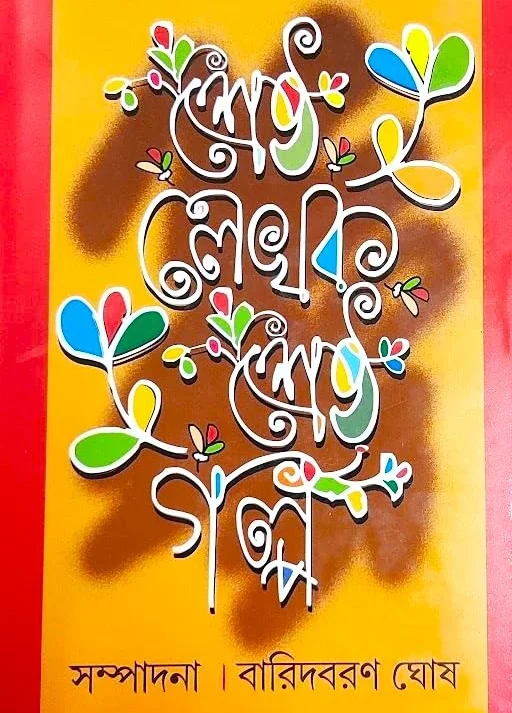 শ্রেষ্ঠ
লেখক
শ্রেষ্ঠ
গল্প
সম্পাদনা । বারিদবরণ ঘোষ